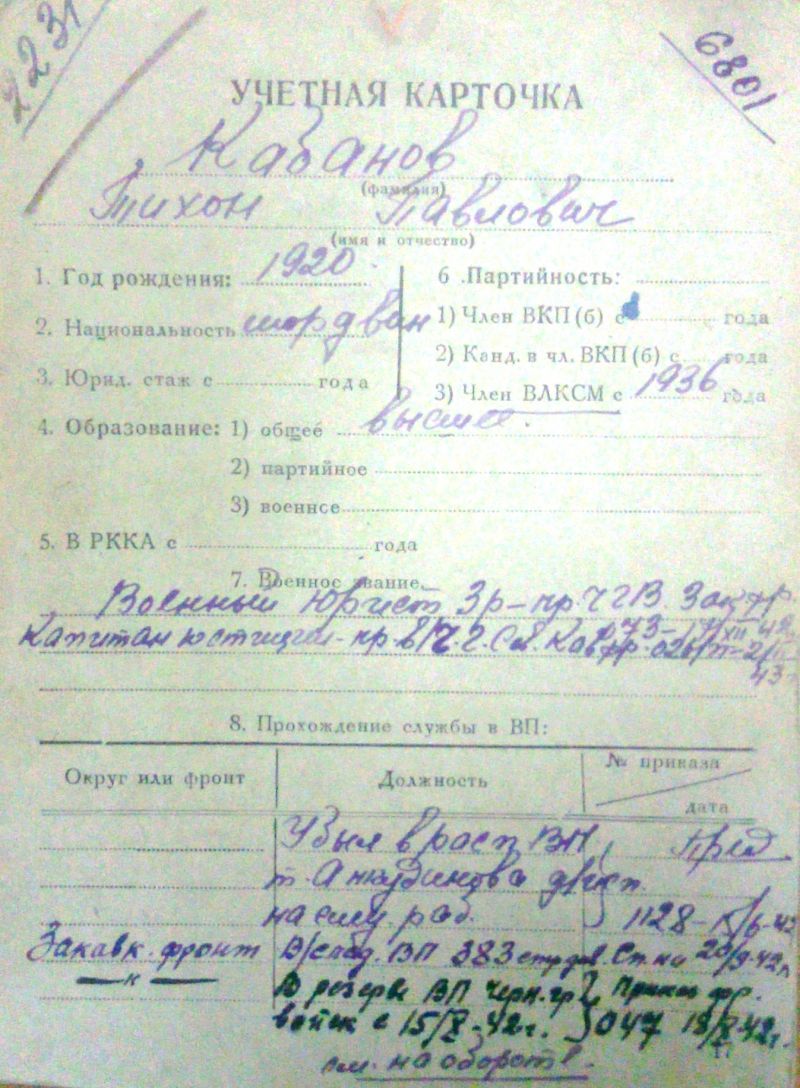 2231
6801
УЧЕТНАЯ КАРТОЧКА
Кабанов
(фамилия)
Тихон Павлович
(имя и отчество)
1. Год рождения: 1920
2. Национальность мордвин
3. Юрид. стаж с года
4. Образование: 1) общее высшее.
2) партийное
3) военное
5. В РККА с года
6. Партийность:
1) Член ВКП(б) с года
2) Канд. в чл. ВКП(б) с года
3) Член ВЛКСМ с 1936 года
7. Военное звание
Военный юрист 3р - пр. ЧГВ. Зак. фр.
Капитан юстиции - пр. в/
43
8. Прохождение службы в ВП:
Округ или фронт Должность № приказа
дата
Убыл в расп ВП
т. Анкудинова
на след. раб. 1128
Закавк. фронт В/след. ВП 383 стр див. 20/
— к — В резерв ВП Черн. гр. Приказ фр.
войск с 15/X-42г. 047 18/X-42г.
см. на оборот.